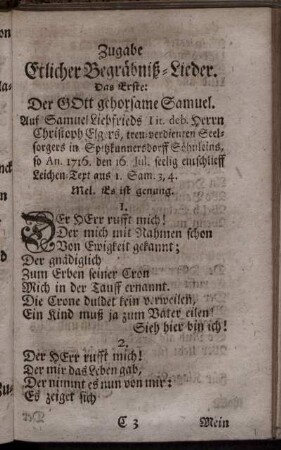 Zugabe
Etlicher Begräbniß-Lieder.
Das Erste:
Der GOtt gehorsame Samuel.
Auf Samuel Liebfrieds Tit. deb. Herrn
Christoph Elgers, treu-verdienten Seel-
sorgers in Spitzkunnersdorff Söhnleins,
so An. 1716. den 16. Jul. seelig einschlieff
Leichen-Text aus 1. Sam. 3, 4.
Mel. Es ist genung.
1.
DEr HErr rufft mich!
Der mich mit Nahmen schon
Von Ewigkeit gekannt;
Der gnädiglich
Zum Erben seiner Cron
Mich in der Tauff ernannt.
Die Crone duldet kein verweilen,
Ein Kind muß ja zum Vater eilen
Sieh hier bin ich!
2.
Der HErr rufft mich!
Der mir das Leben gab,
Der nimmt es nun von mir:
Es zeiget sich
C 3
Mein